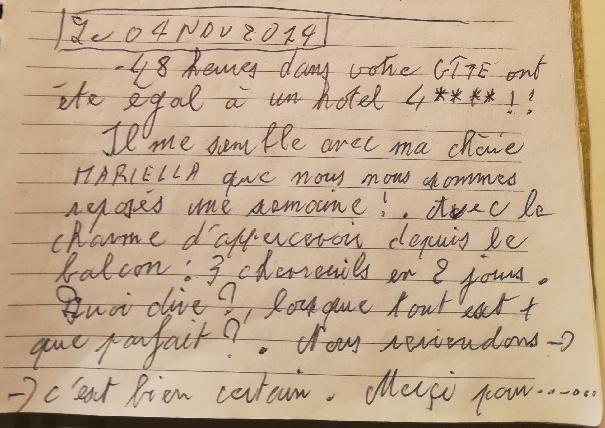 Le 04 NOV 2014
- 48 heures dans votre GÎTE ont
été égal à un hotel 4 ****!!
Il me semble avec ma chérie
MARIELLA que nous nous sommes
reposés une semaine !. Avec le
charme d'appercevoir depuis le
balcon : 3 chevreuils en 2 jours.
Quoi dire ?, lorsque tout est +
que parfait ?. Nous reviendons →
→ c'est bien certain. Merçi pour.......